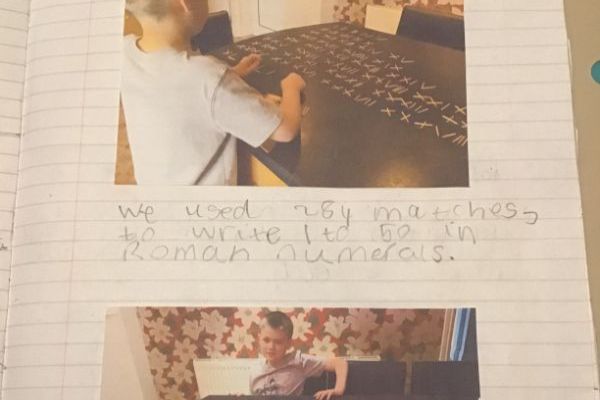 we used 284 matches,
to write 1 to 50 in
Roman numerals.